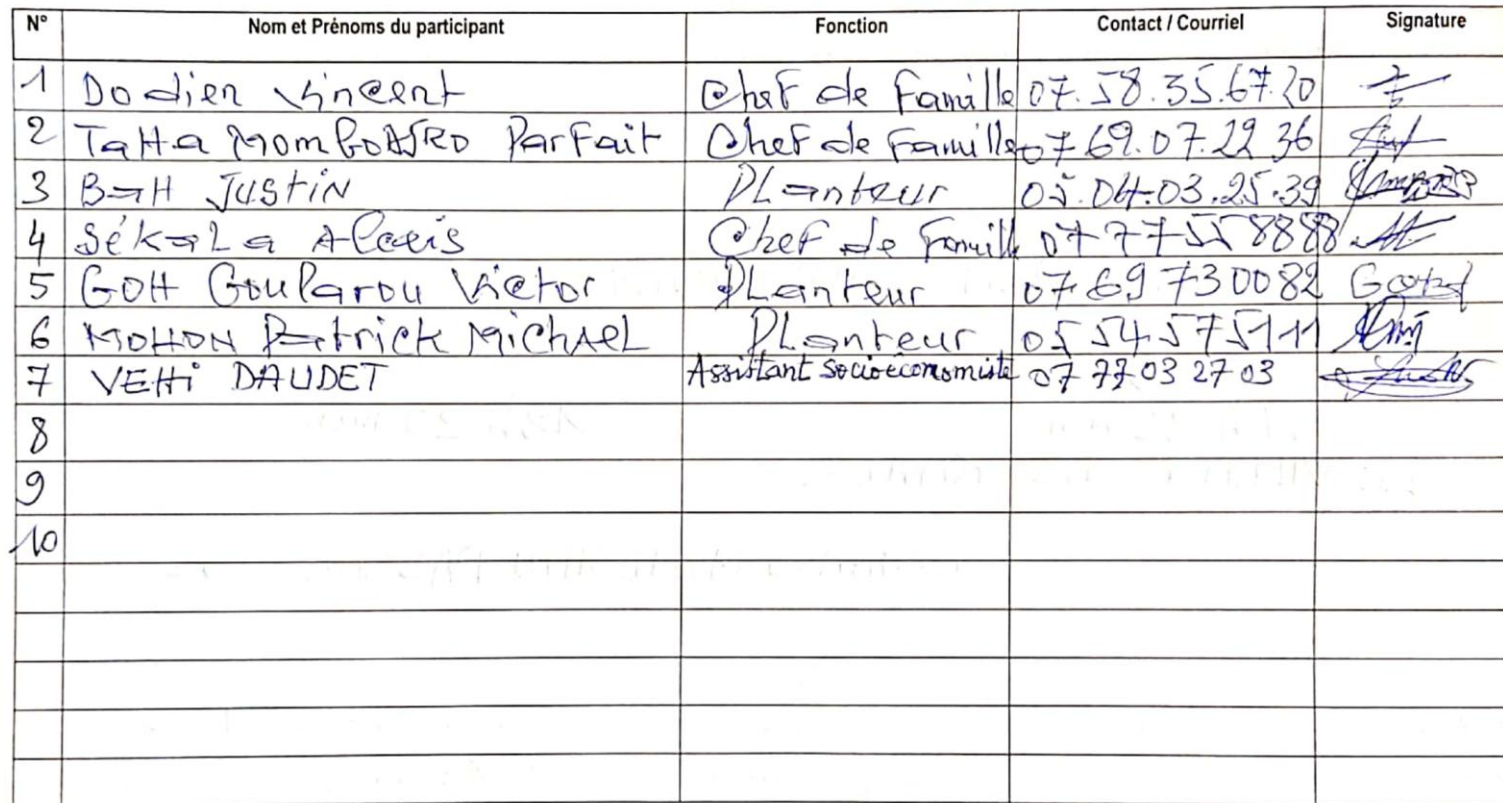 N° Nom et Prénoms du participant Fonction Contact / Courriel Signature
1 Dodien Vincent Chef de Famille 07.58.35.67.20
2 TaHa Parfait Chef de Famille 07 69.07.22 36
3 BaH JUStiN PLanteur 05.04.03.25.39
4 SéKaLa Alexis Chef de Famill 07 77 55 8888
5 GOH Victor PLanteur 07 69 73 00 82
6 MOHON Patrick MichAeL PLanteur 05 54 57 51 11
7 VEHi DAUDET Assistant Socioéconomiste 07 77 03 27 03
8
9
10